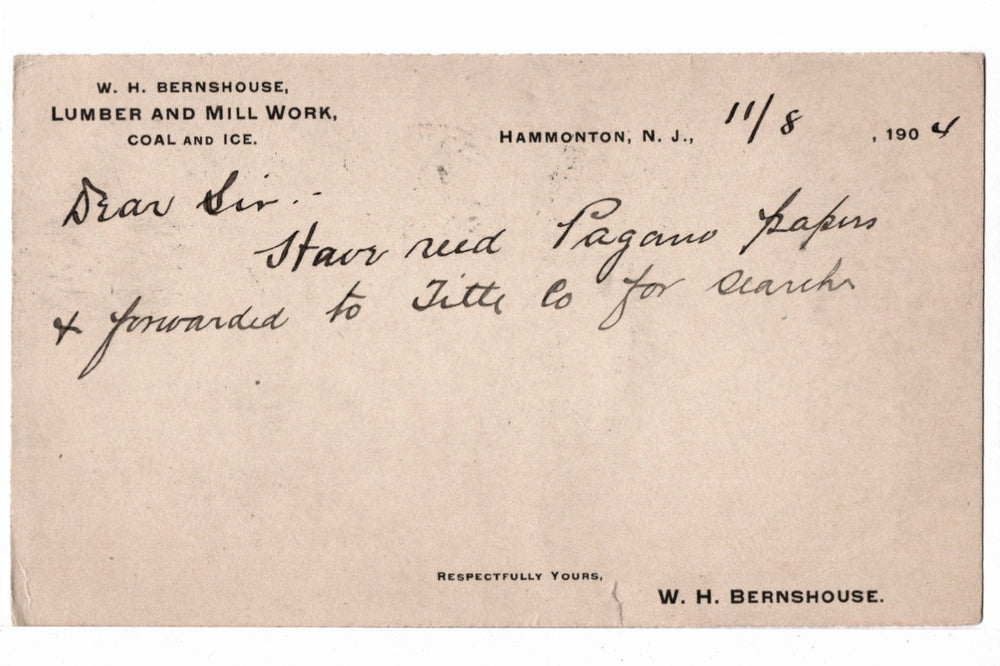 W. H. BERNSHOUSE,
LUMBER AND MILL WORK,
COAL AND ICE.
HAMMONTON, N. J., 11/8, 1904
Dear Sir.-
Have recd Pagano papers
& forwarded to Title Co for searches
RESPECTFULLY YOURS,
W. H. BERNSHOUSE.